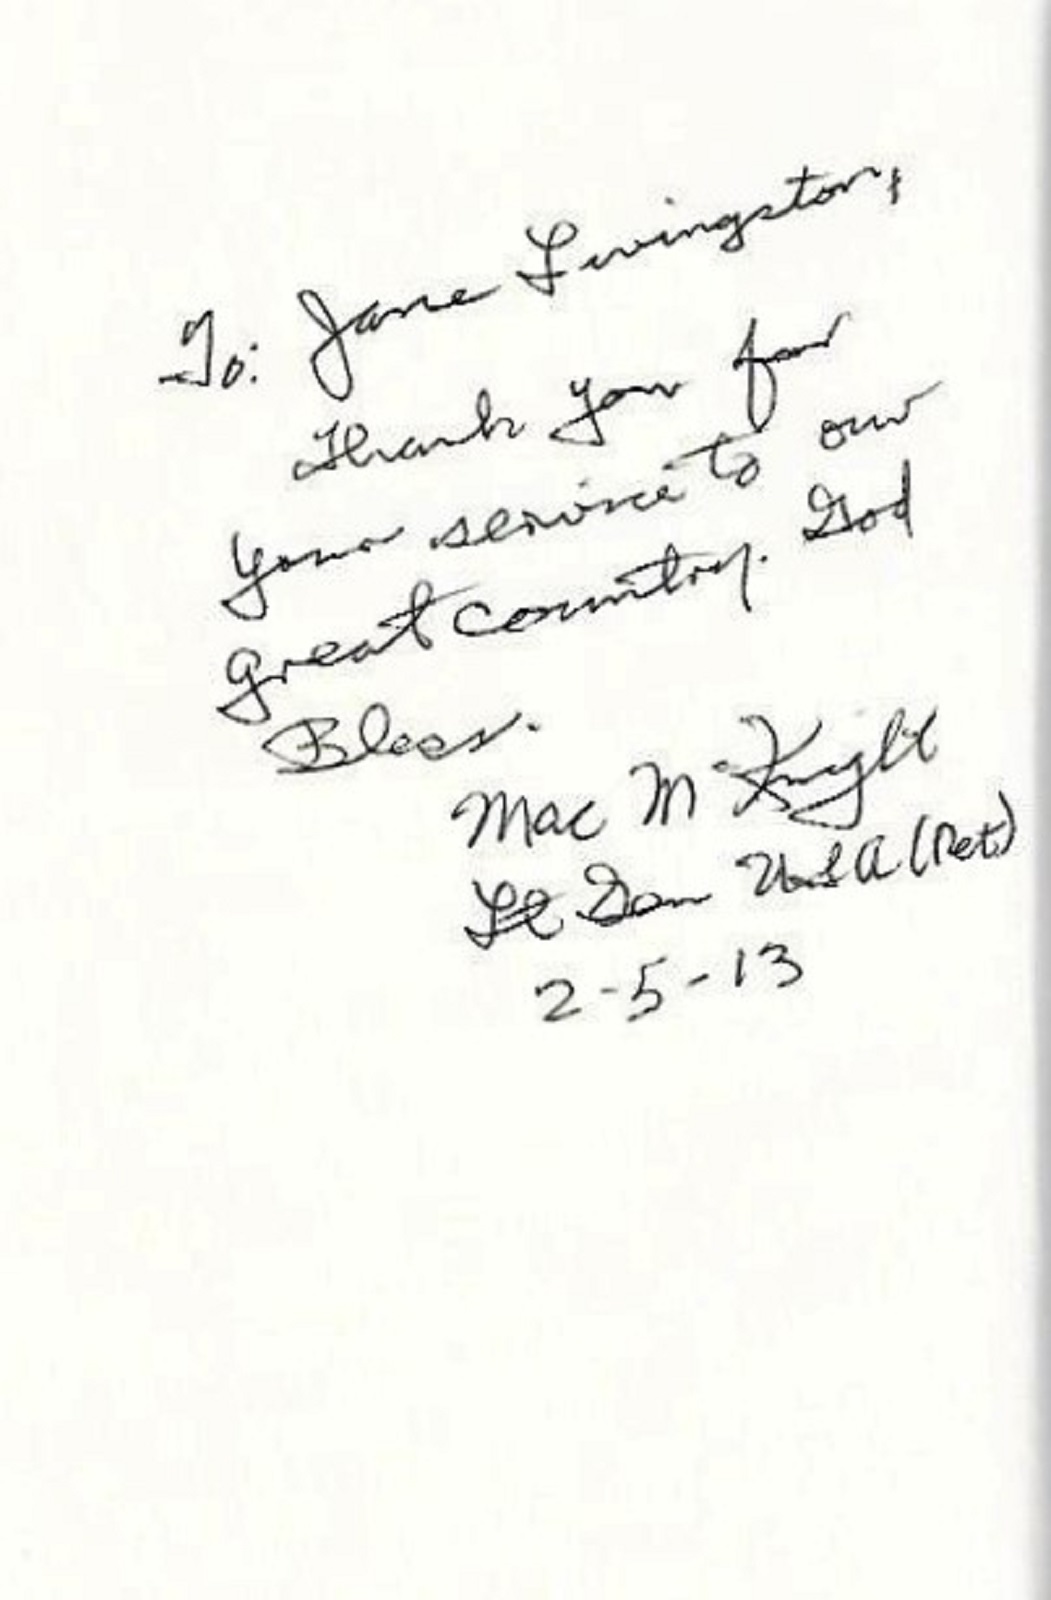 To: Jane Livingston,
Thank you for
your service to our
great country. God
Bless.
Mac McKnight
Lt Gen USA (Ret)
2-5-13